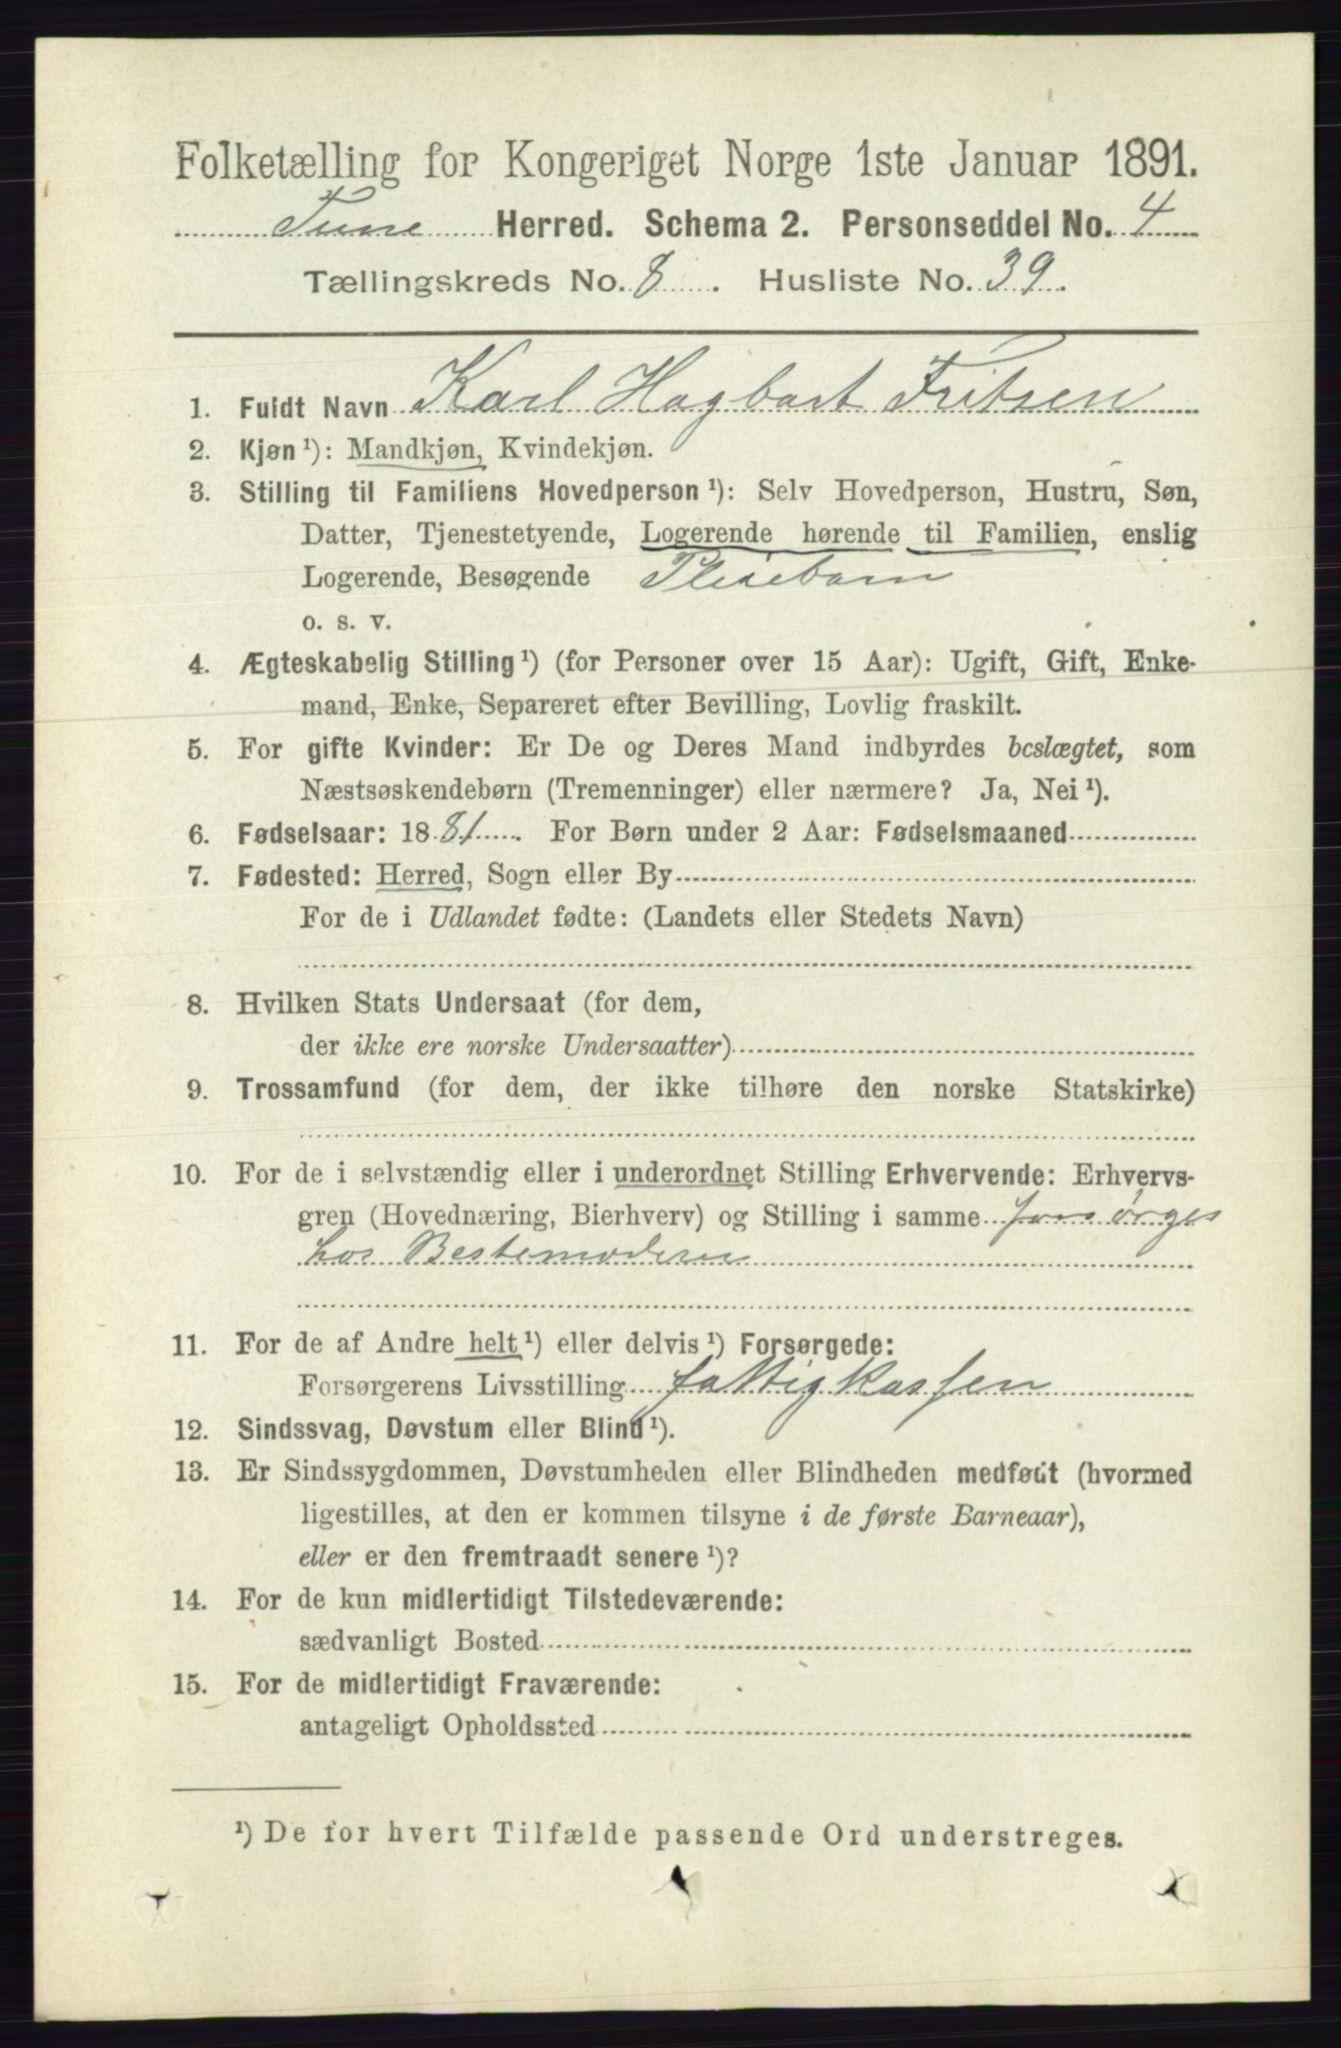 Folketælling for Kongeriget Norge 1ste Januar 1891.
Tune Herred. Schema 2. Personseddel No. 4
Tællingskreds No. 8. Husliste No. 39.
1. Fuldt Navn Karl Hagbart Fritsen
2. Kjøn ¹): Mandkjøn, Kvindekjøn.
3. Stilling til Familiens Hovedperson ¹): Selv Hovedperson, Hustru, Søn,
Datter, Tjenestetyende, Logerende hørende til Familien, enslig
Logerende, Besøgende Pleiebarn
o. s. v.
4. Ægteskabelig Stilling ¹) (for Personer over 15 Aar): Ugift, Gift, Enke-
mand, Enke, Separeret efter Bevilling, Lovlig fraskilt.
5. For gifte Kvinder: Er De og Deres Mand indbyrdes beslægtet, som
Næstsøskendebørn (Tremenninger) eller nærmere? Ja, Nei ¹).
6. Fødselsaar: 1881. For Børn under 2 Aar: Fødselsmaaned
7. Fødested: Herred, Sogn eller By
For de i Udlandet fødte: (Landets eller Stedets Navn)
8. Hvilken Stats Undersaat (for dem,
der ikke ere norske Undersaatter)
9. Trossamfund (for dem, der ikke tilhøre den norske Statskirke)
10. For de i selvstændig eller i underordnet Stilling Erhvervende: Erhvervs-
gren (Hovednæring, Bierhverv) og Stilling i samme forsørges
hos Bestemoderen
11. For de af Andre helt ¹) eller delvis ¹) Forsørgede:
Forsørgerens Livsstilling fattigkassen
12. Sindssvag, Døvstum eller Blind ¹).
13. Er Sindssygdommen, Døvstumheden eller Blindheden medfødt (hvormed
ligestilles, at den er kommen tilsyne i de første Barneaar),
eller er den fremtraadt senere ¹)?
14. For de kun midlertidigt Tilstedeværende:
sædvanligt Bosted
15. For de midlertidigt Fraværende:
antageligt Opholdssted
¹) De for hvert Tilfælde passende Ord understreges.